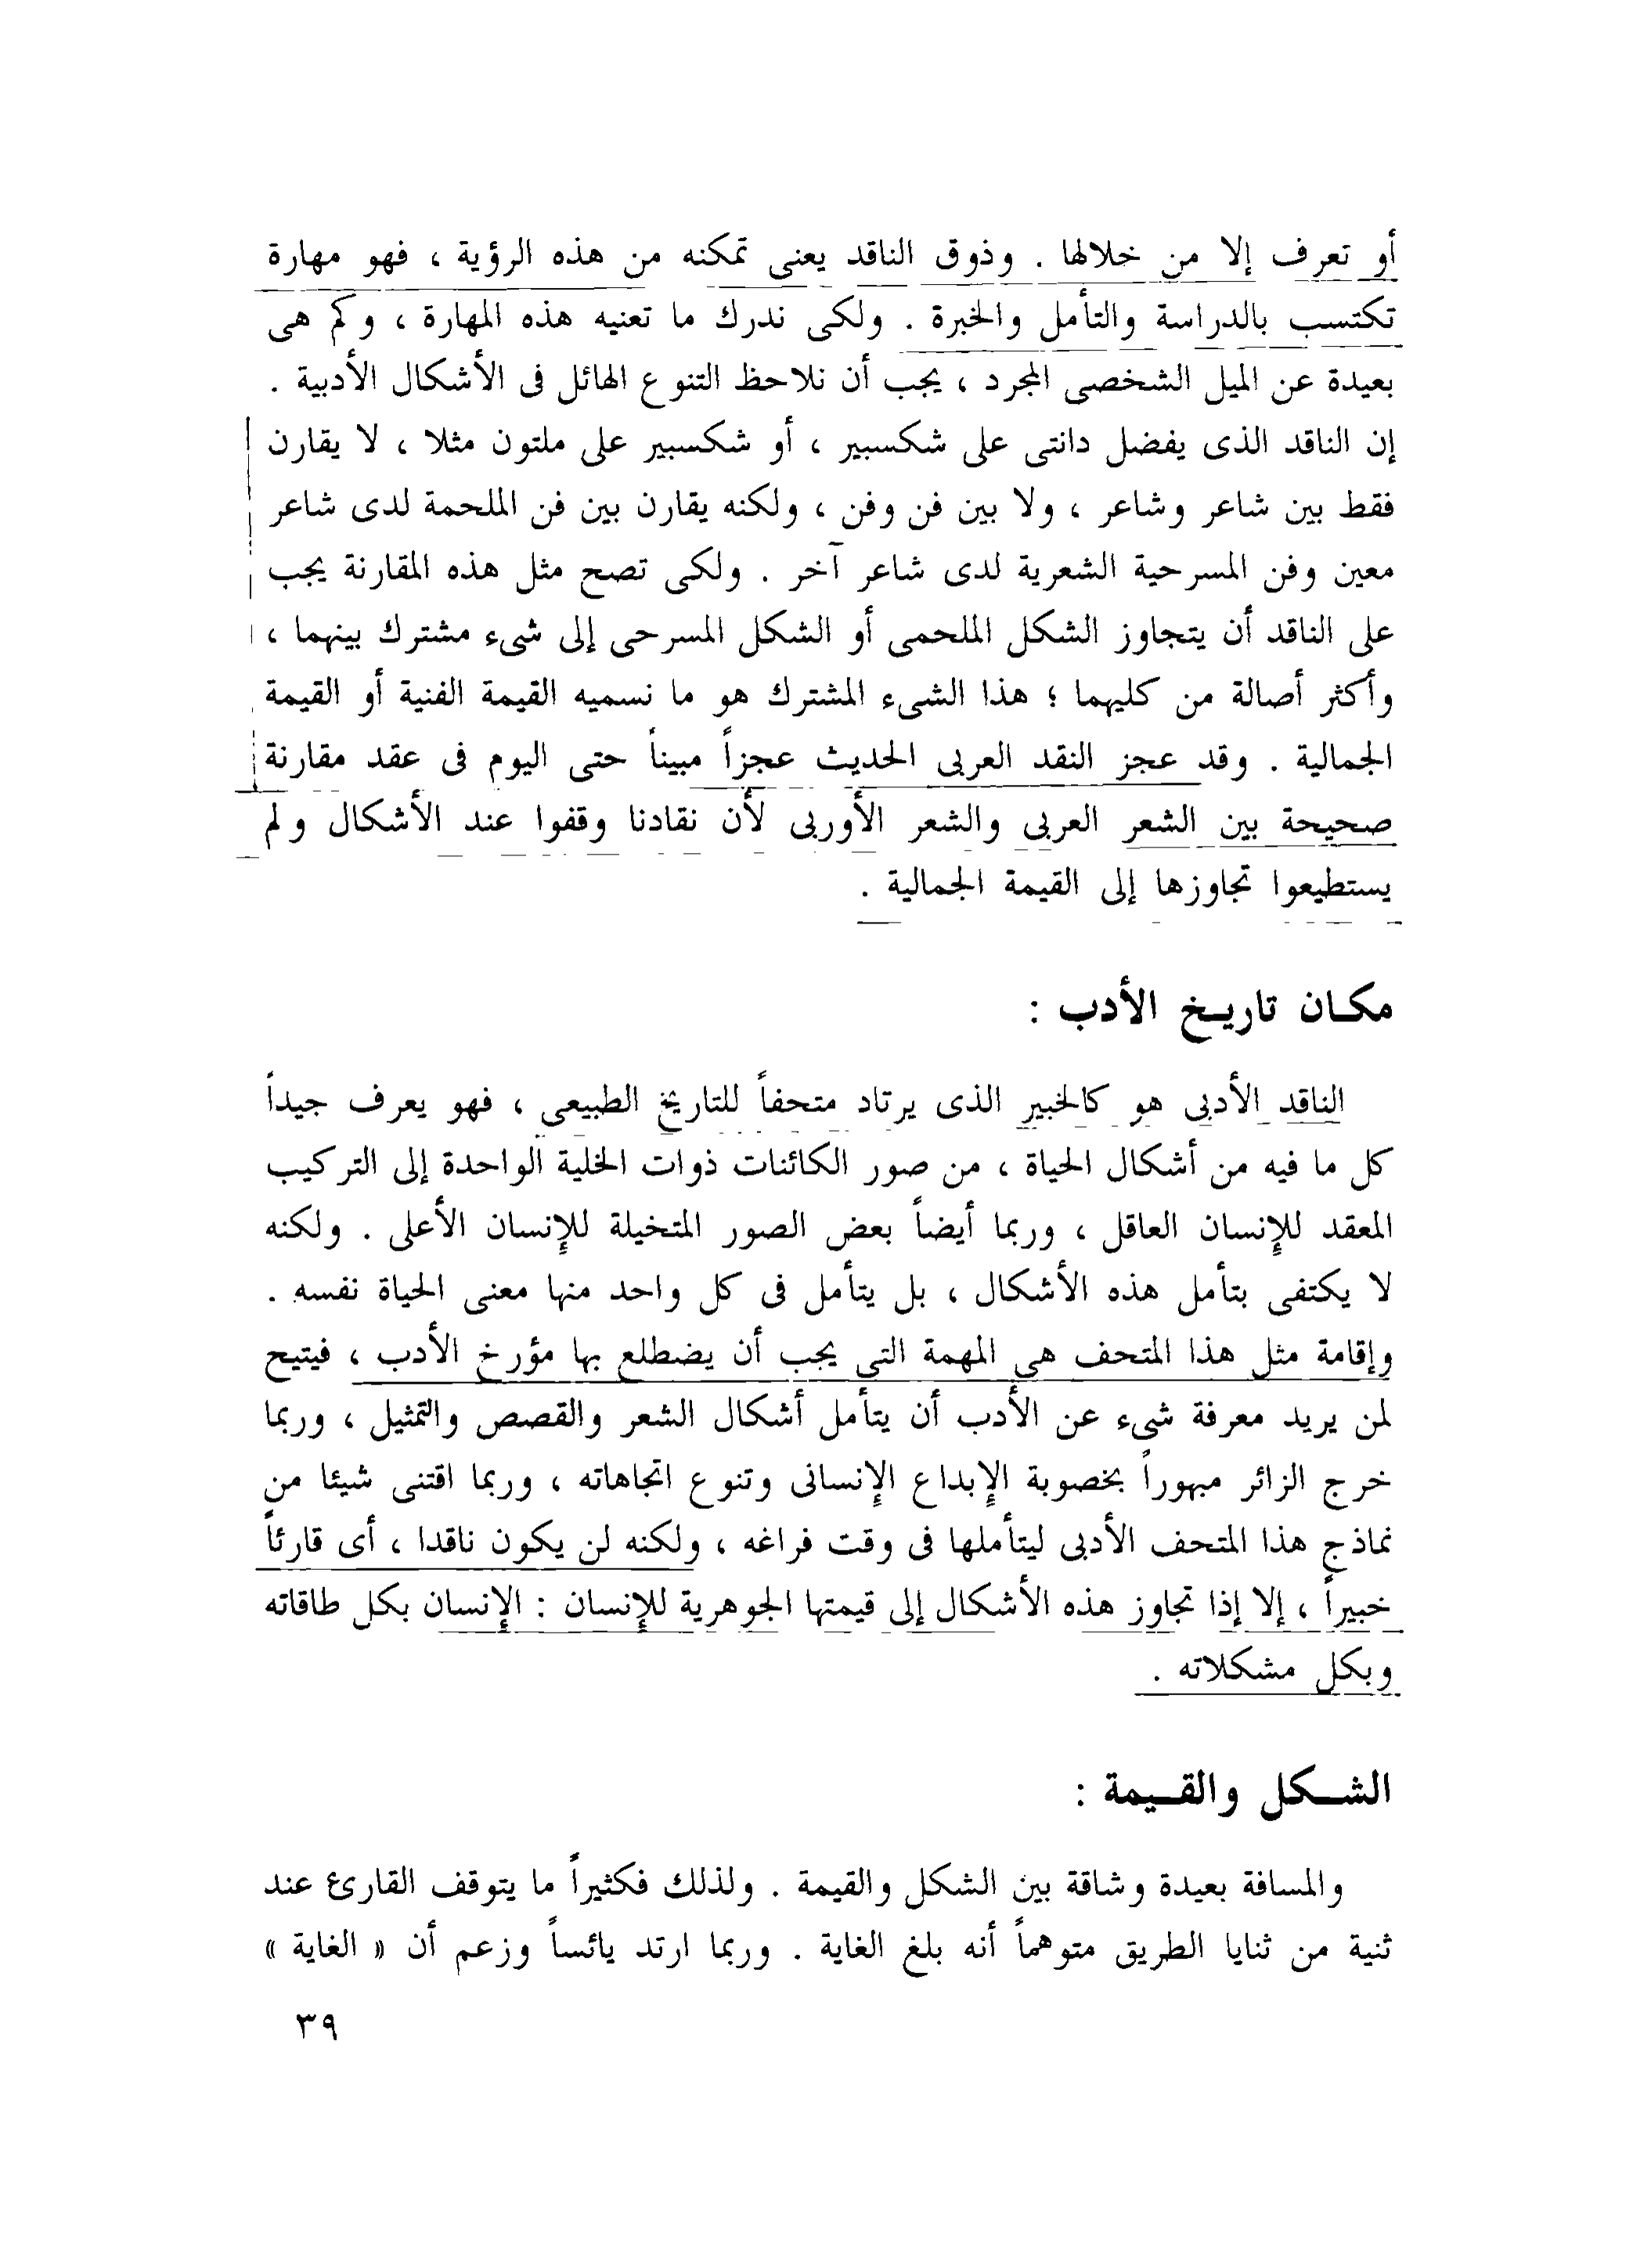 أو تعرف إلا من خلالها . وذوق الناقد يعنى تمكنه من هذه الرؤية ، فهو مهارة
تكتسب بالدراسة والتأمل والخبرة . ولكى ندرك ما تعنيه هذه المهارة ، وكم هى
بعيدة عن الميل الشخصى المجرد ، يجب أن نلاحظ التنوع الهائل فى الأشكال الأدبية .
إن الناقد الذى يفضل دانتى على شكسبير ، أو شكسبير على ملتون مثلا ، لا يقارن
فقط بين شاعر وشاعر ، ولا بين فن وفن ، ولكنه يقارن بين فن الملحمة لدى شاعر
معين وفن المسرحية الشعرية لدى شاعر آخر . ولكى تصح مثل هذه المقارنة يجب
على الناقد أن يتجاوز الشكل الملحمى أو الشكل المسرحى إلى شىء مشترك بينهما ،
وأكثر أصالة من كليهما ؛ هذا الشىء المشترك هو ما نسميه القيمة الفنية أو القيمة
الجمالية . وقد عجز النقد العربى الحديث عجزاً مبيناً حتى اليوم فى عقد مقارنة
صحيحة بين الشعر العربى والشعر الأوربى لأن نقادنا وقفوا عند الأشكال ولم
يستطيعوا تجاوزها إلى القيمة الجمالية .
مكـان تاريـخ الأدب :
الناقد الأدبى هو كالخبير الذى يرتاد متحفاً للتاريخ الطبيعى ، فهو يعرف جيداً
كل ما فيه من أشكال الحياة ، من صور الكائنات ذوات الخلية الواحدة إلى التركيب
المعقد للإنسان العاقل ، وربما أيضاً بعض الصور المتخيلة للإنسان الأعلى . ولكنه
لا يكتفى بتأمل هذه الأشكال ، بل يتأمل فى كل واحد منها معنى الحياة نفسه .
وإقامة مثل هذا المتحف هى المهمة التى يجب أن يضطلع بها مؤرخ الأدب ، فيتيح
لمن يريد معرفة شىء عن الأدب أن يتأمل أشكال الشعر والقصص والتمثيل ، وربما
خرج الزائر مبهوراً بخصوبة الإبداع الإنسانى وتنوع اتجاهاته ، وربما اقتنى شيئا من
نماذج هذا المتحف الأدبى ليتأملها فى وقت فراغه ، ولكنه لن يكون ناقدا ، أى قارئاً
خبيراً ، إلا إذا تجاوز هذه الأشكال إلى قيمتها الجوهرية للإنسان : الإنسان بكل طاقاته
وبكل مشكلاته .
الشـكل والقـيمة :
والمسافة بعيدة وشاقة بين الشكل والقيمة . ولذلك فكثيراً ما يتوقف القارئ عند
ثنية من ثنايا الطريق متوهماً أنه بلغ الغاية . وربما ارتد يائساً وزعم أن « الغاية »
٣٩